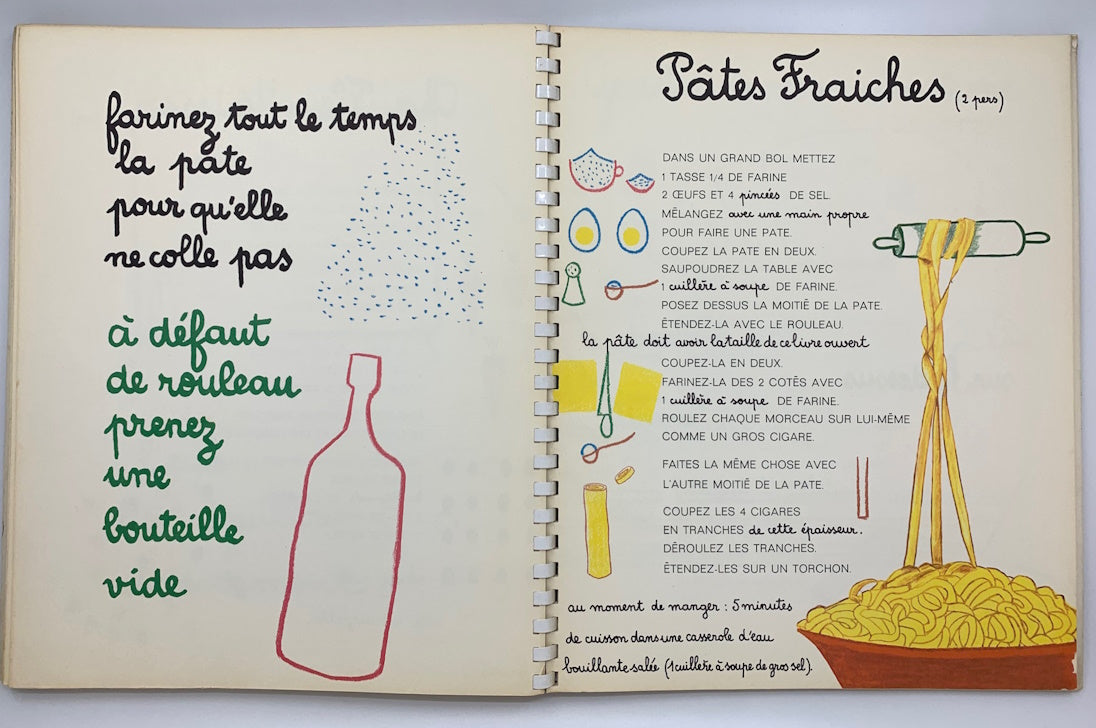 farinez tout le temps
la pâte
pour qu'elle
ne colle pas
à défaut
de rouleau
prenez
une
bouteille
vide
Pâtes Fraiches (2 pers)
DANS UN GRAND BOL METTEZ
1 TASSE 1/4 DE FARINE
2 ŒUFS ET 4 pincées DE SEL.
MÊLANGEZ avec une main propre
POUR FAIRE UNE PATE.
COUPEZ LA PATE EN DEUX.
SAUPOUDREZ LA TABLE AVEC
1 cuillère à soupe DE FARINE.
POSEZ DESSUS LA MOITIÊ DE LA PATE.
ÊTENDEZ-LA AVEC LE ROULEAU.
la pâte doit avoir la taille de ce livre ouvert
COUPEZ-LA EN DEUX.
FARINEZ-LA DES 2 COTÊS AVEC
1 cuillère à soupe DE FARINE.
ROULEZ CHAQUE MORCEAU SUR LUI-MÊME
COMME UN GROS CIGARE.
FAITES LA MÊME CHOSE AVEC
L'AUTRE MOITIÊ DE LA PATE.
COUPEZ LES 4 CIGARES
EN TRANCHES de cette épaisseur.
DÊROULEZ LES TRANCHES.
ÊTENDEZ-LES SUR UN TORCHON.
au moment de manger : 5 minutes
de cuisson dans une casserole d'eau
bouillante salée (1 cuillère à soupe de gros sel).